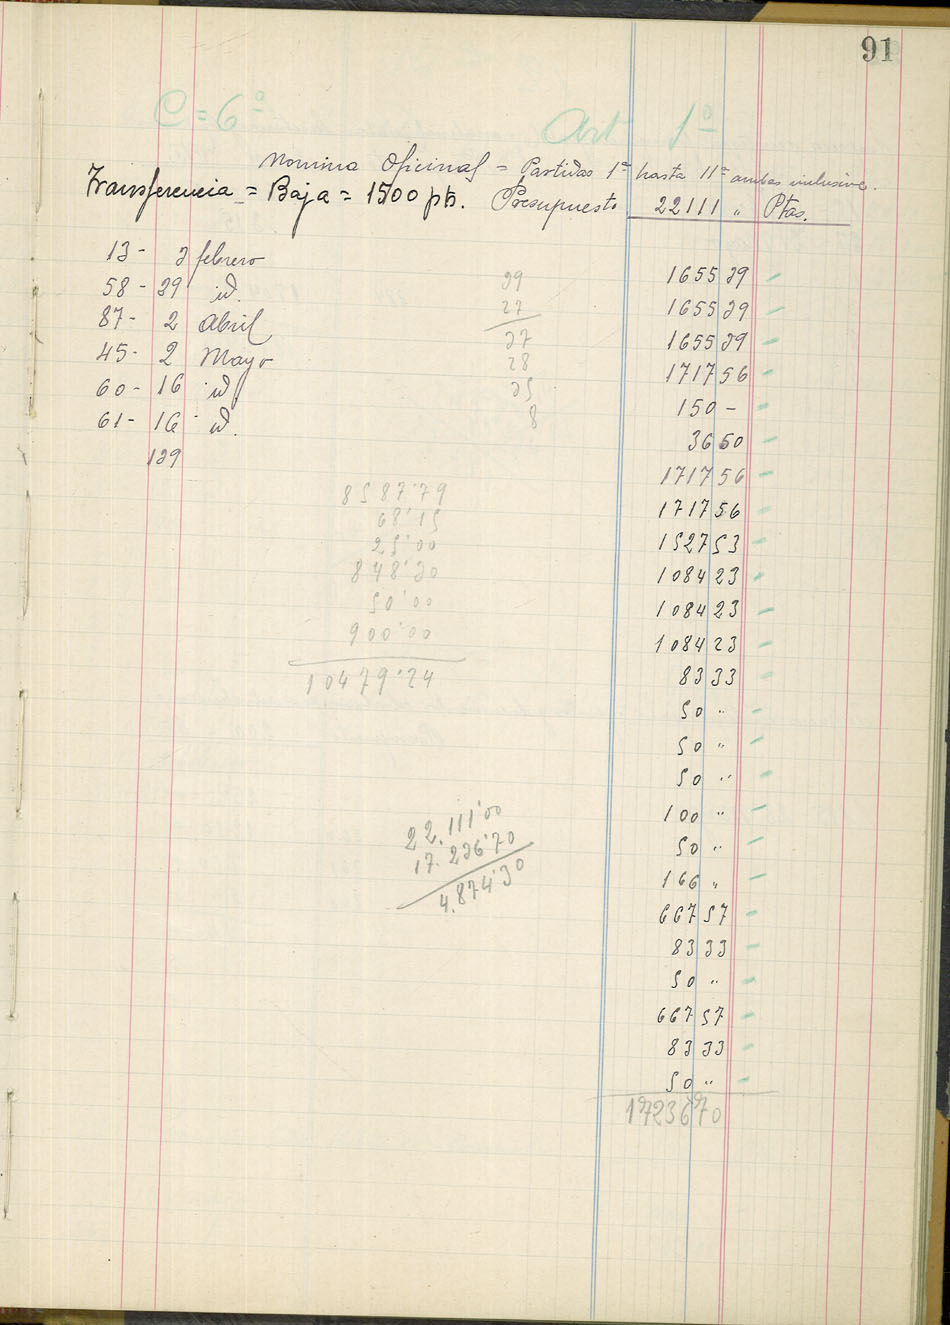 91
C = 6º Art 1º
Nomina Oficinas = Partidas 1ª hasta 11ª ambas inclusive.
Transferencia = Baja = 1500 pts. Presupuesto 22111 " Ptas.
13 - 2 febrero
1655 29
58 - 29 id. 29
1655 29
87 - 2 Abril 27
1655 29
45 - 2 Mayo 27
1717 56
60 - 16 id 28
150 -
61 - 16 id. 25
36 50
129 8
1717 56
8587'79
1717 56
68'15
1527 53
25'00
1084 23
848'30
1084 23
50'00
1084 23
900'00
83 33
10479'24
50 "
50 "
50 "
100 "
22.111'00
50 "
17.236'70
166 "
4.874'30
667 57
83 33
50 "
667 57
83 33
50 "
17236 70